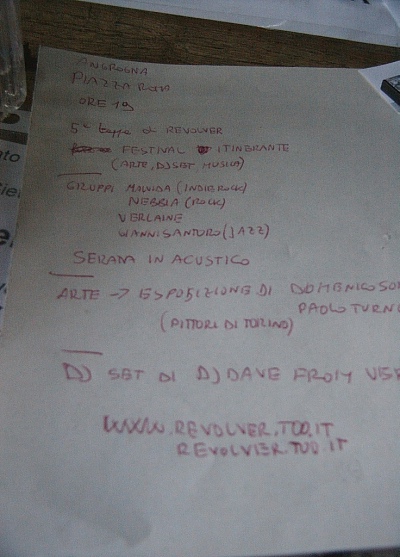 ANGROGNA
PIAZZA ROMA
ORE 19
5ª tappa di REVOLVER
FESTIVAL ITINERANTE
(ARTE, DJ SET, MUSICA)
GRUPPI MALVIDA (INDIEROCK)
NEBBIA (ROCK)
VERLAINE
WANNISANTURO (JAZZ)
SERATA IN ACUSTICO
ARTE → ESPOSIZIONE DI DOMENICO SO
PAOLO TURN
(PITTORI DI TORINO)
DJ SET DI DJ DAVE FROM VER
WWW.REVOLVER.TOO.IT
REVOLVER.TOO.IT